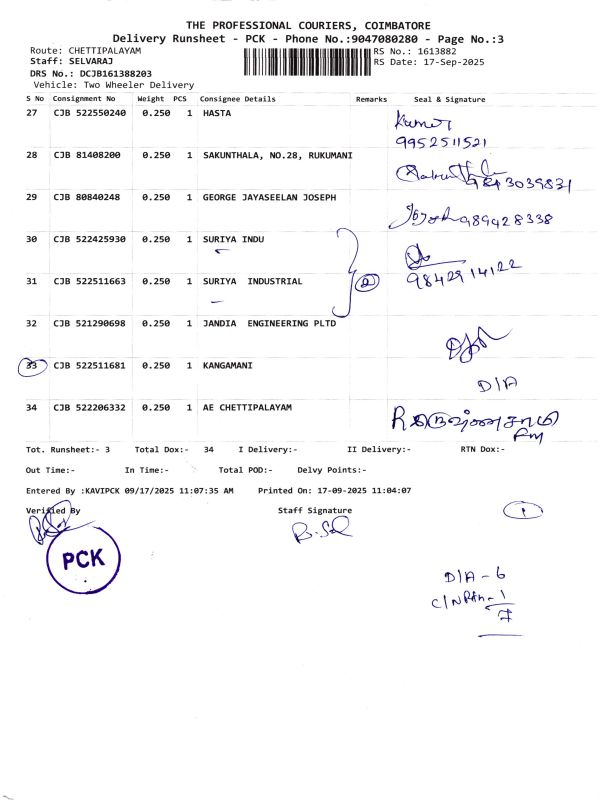 THE PROFESSIONAL COURIERS, COIMBATORE
Delivery Runsheet - PCK - Phone No.:9047080280 - Page No.:3
Route: CHETTIPALAYAM RS No.: 1613882
Staff: SELVARAJ RS Date: 17-Sep-2025
DRS No.: DCJB161388203
Vehicle: Two Wheeler Delivery
S No Consignment No Weight PCS Consignee Details Remarks Seal & Signature
27 CJB 522550240 0.250 1 HASTA Kumar
9952511521
28 CJB 81408200 0.250 1 SAKUNTHALA, NO.28, RUKUMANI
9843039831
29 CJB 80840248 0.250 1 GEORGE JAYASEELAN JOSEPH 989428338
30 CJB 522425930 0.250 1 SURIYA INDU
31 CJB 522511663 0.250 1 SURIYA INDUSTRIAL 2 9842914122
32 CJB 521290698 0.250 1 JANDIA ENGINEERING PLTD
33 CJB 522511681 0.250 1 KANGAMANI D/A
34 CJB 522206332 0.250 1 AE CHETTIPALAYAM
Tot. Runsheet:- 3 Total Dox:- 34 I Delivery:- II Delivery:- RTN Dox:-
Out Time:- In Time:- Total POD:- Delvy Points:-
Entered By :KAVIPCK 09/17/2025 11:07:35 AM Printed On: 17-09-2025 11:04:07
Verified By Staff Signature 1
PCK
D/A - 6
7